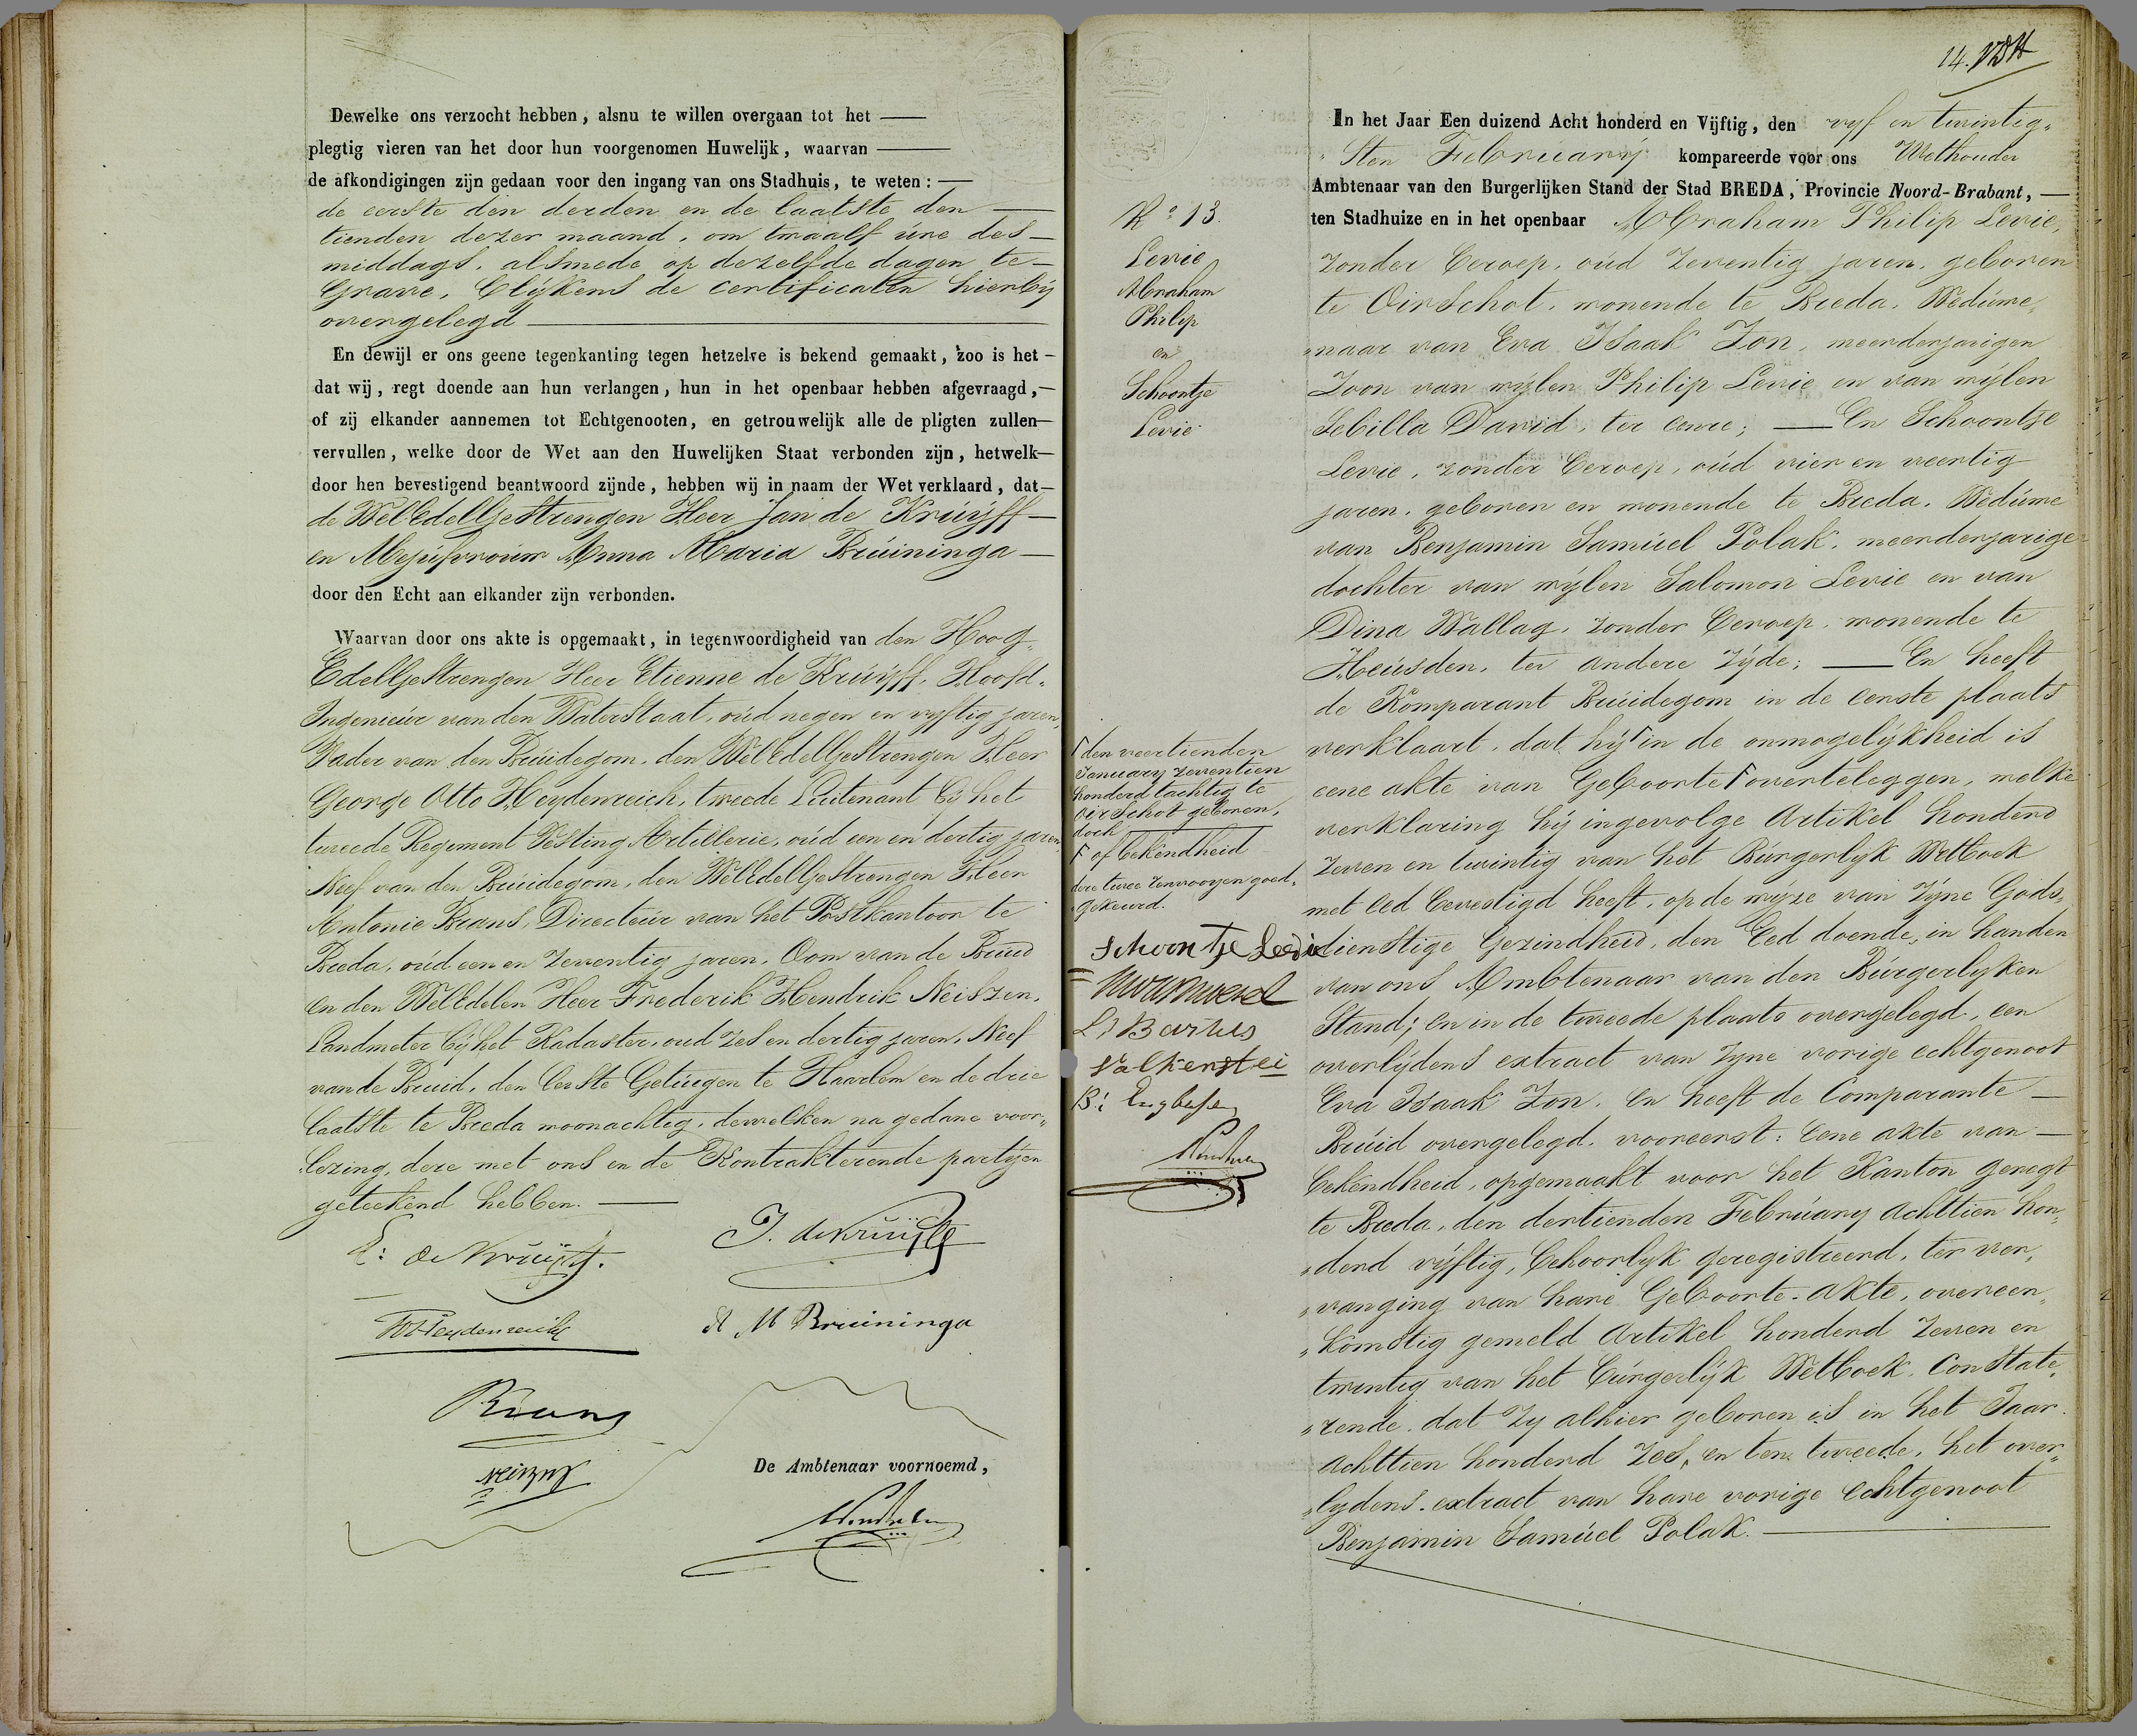 Dewelke ons verzocht hebben, alsnu te willen overgaan tot het —
plegtig vieren van het door hun voorgenomen Huwelijk, waarvan —
de afkondigingen zijn gedaan voor den ingang van ons Stadhuis, te weten: —
de eerste den derden en de laatste den —
tienden dezer maand, om twaalf ure des —
middags, alsmede op dezelfde dagen te —
Grave, blijkens de certificaten hierbij
overgelegd —
En dewijl er ons geene tegenkanting tegen hetzelve is bekend gemaakt, zoo is het —
dat wij, regt doende aan hun verlangen, hun in het openbaar hebben afgevraagd, —
of zij elkander aannemen tot Echtgenooten, en getrouwelijk alle de pligten zullen —
vervullen, welke door de Wet aan den Huwelijken Staat verbonden zijn, hetwelk —
door hen bevestigend beantwoord zijnde, hebben wij in naam der Wet verklaard, dat —
de WelEdelGestrengen Heer Jan de Kruijff —
en Mejufvrouw Anna Maria Bruininga —
door den Echt aan elkander zijn verbonden.
Waarvan door ons akte is opgemaakt, in tegenwoordigheid van den Hoog„
EdelGestrengen Heer Etienne de Kruijff, Hoofd„
Ingenieur van den Waterstaat, oud negen en vyftig jaren,
Vader van den Bruidegom, den WelEdelGestrengen Heer
George Otto Heydenreich, tweede Luitenant bij het
tweede Regiment Vesting Artillerie, oud een en dertig jaren,
Neef van den Bruidegom, den WelEdelGestrengen Heer
Antonie Brans, Directeur van het Postkantoor te
Breda, oud een en zeventig jaren, Oom van de Bruid
en den WelEdelen Heer Frederik Hendrik Neiszen,
Landmeter bij het Kadaster, oud zes en dertig jaren, Neef
van de Bruid, den eerste Getuigen te Haarlem en de drie
laatste te Breda woonachtig, dewelken na gedane voor„
lezing, deze met ons en de Kontrakterende partijen
geteekend hebben. —
E: de Kruijff.
J. de Kruijff
Heydenreich
A M Bruininga
Brans
Neiszen
De Ambtenaar voornoemd,
14.
No 13.
Levie
Abraham
Philip
en
Schoontje
Levie
In het Jaar Een duizend Acht honderd en Vijftig, den vyf en twintig„
„sten February kompareerde voor ons Wethouder
Ambtenaar van den Burgerlijken Stand der Stad BREDA, Provincie Noord-Brabant, —
ten Stadhuize en in het openbaar Abraham Philip Levie,
zonder beroep, oud zeventig jaren, geboren
te Oirschot, wonende te Breda, Weduwe„
„naar van Eva Isaak Zon, meerderjarigen
Zoon van wijlen Philip Levie en van wijlen
Sebilla David, ter eenre; — En Schoontje
Levie, zonder beroep, oud vier en veertig
jaren, geboren en wonende te Breda, Weduwe
van Benjamin Samuel Polak, meerderjarige
dochter van wijlen Salomon Levie en van
Dina Wallag, zonder beroep, wonende te
Heusden, ter andere zijde; — En heeft
de Komparant Bruidegom in de eerste plaats
verklaart, dat hij ſ in de onmogelijkheid is
eene akte van Geboorte ſ overteleggen, welke
verklaring hij ingevolge Artikel honderd
zeven en twintig van het Burgerlijk Wetboek
met eed bevestigd heeft, op de wijze van zijne Gods„
dienstige Gezindheid, den Eed doende, in handen
van ons Ambtenaar van den Burgerlijken
Stand; en in de tweede plaats overgelegd, een
overlijdens extract van zyne vorige echtgenoot
Eva Isaak Zon. En heeft de Comparante —
Bruid overgelegd, vooreerst: Eene akte van —
bekendheid, opgemaakt voor het Kanton geregt
te Breda, den dertienden February achttien hon„
„derd vijftig, behoorlyk geregistreerd, ter ver„
„vanging van hare Geboorte-akte, overeen„
„komstig gemeld Artikel honderd zeven en
twintig van het Burgerlijk Wetboek, constate„
„rende, dat zy alhier geboren is in het Jaar
Achttien honderd zes, en ten tweede, het over„
„lydens-extract van hare vorige echtgenoot
Benjamin Samuel Polak. —
ſ den veertienden
January zeventien
honderd tachtig te
Oirschot geboren,
doch
ſ of bekendheid
deze twee renvooyen goed„
„gekeurd.
Schoontje Levie